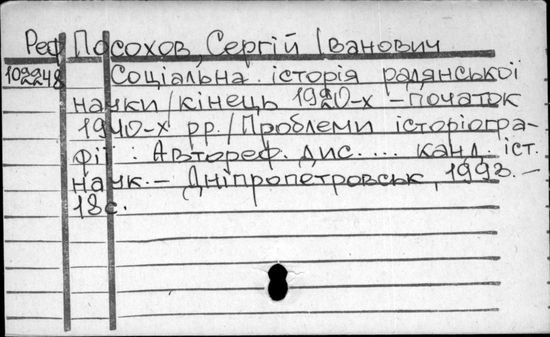 Реф Посохов, Сергій Іванович
102248 Соціальна історія радянської
науки /кінець 1920-х – початок
1940-х рр./Проблеми історіогра-
фії : Автореф. дис. ... канд. іст.
наук. – Дніпропетровськ, 1993. –
18с.